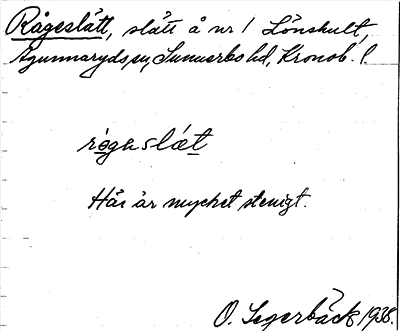 Rågeslätt, slätt å nr 1 Lönshult,
Agunnaryds sn, Sunnerbo hd, Kronob. l.
rågaslæt
Här är mycket stenigt.
O. Segerbäck 1938.